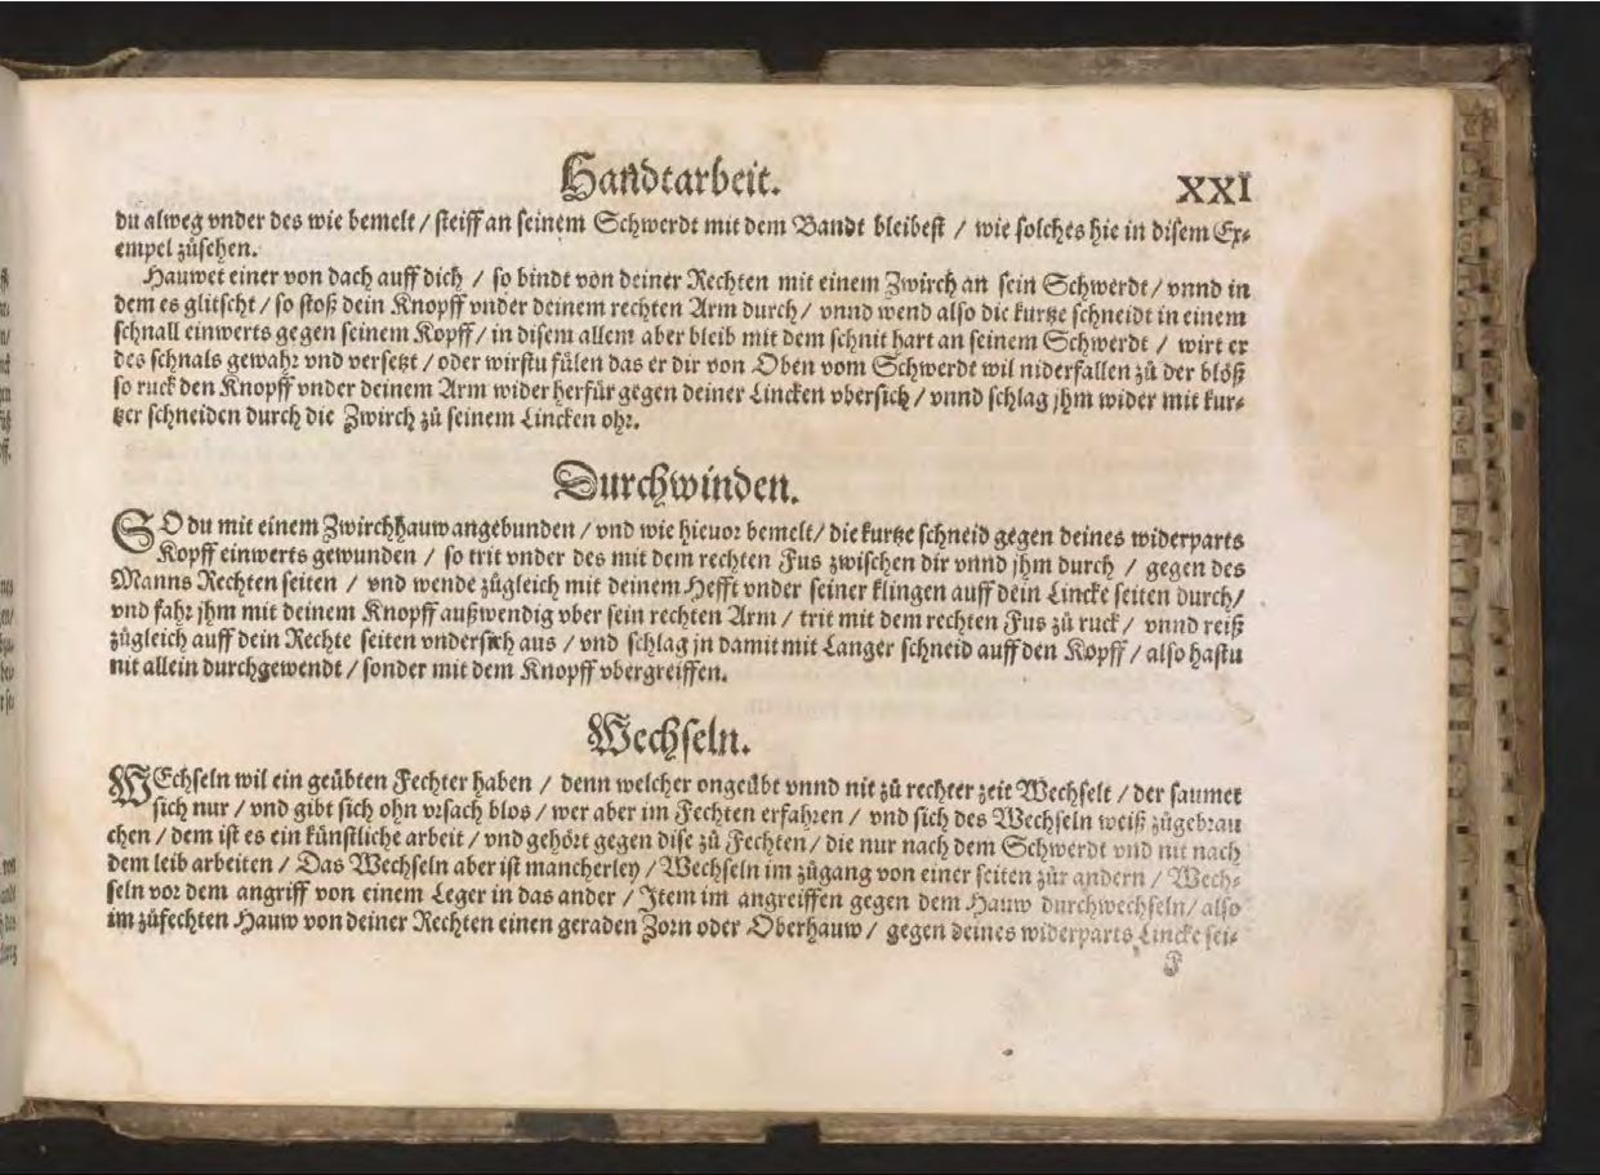 Handtarbeit.
XXI
du alweg vnder des wie bemelt / steiff an seinem Schwerdt mit dem Bandt bleibest / wie solches hie in disem Ex⸗
empel zůsehen.
Hauwet einer von dach auff dich / so bindt von deiner Rechten mit einem Zwirch an sein Schwerdt / vnnd in
dem es glitscht / so stoß dein Knopff vnder deinem rechten Arm durch / vnnd wend also die kurtze schneidt in einem
schnall einwerts gegen seinem Kopff / in disem allem aber bleib mit dem schnit hart an seinem Schwerdt / wirt er
des schnals gewahr vnd versetzt / oder wirstu fülen das er dir von Oben vom Schwerdt wil niderfallen zů der blöß
so ruck den Knopff vnder deinem Arm wider herfür gegen deiner Lincken vbersich / vnnd schlag jhm wider mit kur⸗
tzer schneiden durch die Zwirch zů seinem Lincken ohr.
Durchwinden.
SO du mit einem Zwirchhauw angebunden / vnd wie hieuor bemelt / die kurtze schneid gegen deines widerparts
Kopff einwerts gewunden / so trit vnder des mit dem rechten Fus zwischen dir vnnd jhm durch / gegen des
Manns Rechten seiten / vnd wende zůgleich mit deinem Hefft vnder seiner klingen auff dein Lincke seiten durch /
vnd fahr jhm mit deinem Knopff außwendig vber sein rechten Arm / trit mit dem rechten Fus zů ruck / vnnd reiß
zůgleich auff dein Rechte seiten vndersich aus / vnd schlag jn damit mit Langer schneid auff den Kopff / also hastu
nit allein durchgewendt / sonder mit dem Knopff vbergreiffen.
Wechseln.
WEchseln wil ein geübten Fechter haben / denn welcher ongeübt vnnd nit zů rechter zeit Wechselt / der saumet
sich nur / vnd gibt sich ohn vrsach blos / wer aber im Fechten erfahren / vnd sich des Wechseln weiß zůgebrau
chen / dem ist es ein künstliche arbeit / vnd gehört gegen dise zů Fechten / die nur nach dem Schwerdt vnd nit nach
dem leib arbeiten / Das Wechseln aber ist mancherley / Wechseln im zůgang von einer seiten zůr andern / Wech⸗
seln vor dem angriff von einem Leger in das ander / Item im angreiffen gegen dem Hauw durchwechseln / also
im zůfechten Hauw von deiner Rechten einen geraden Zorn oder Oberhauw / gegen deines widerparts Lincke sei⸗
F